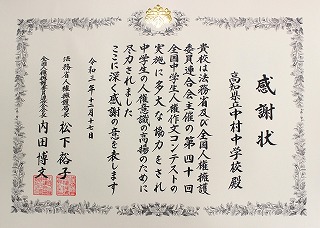 感謝状
高知県立中村中学校殿
貴校は法務省及び全国人権擁護
委員連合会主催の第四十回
全国中学生人権作文コンテストの
実施に多大な協力をされ
中学生の人権意識の高揚のために
尽力されました
ここに深く感謝の意を表します
令和三年十二月十七日
法務省人権擁護局長 松下裕子
全国人権擁護委員連合会長 内田博文